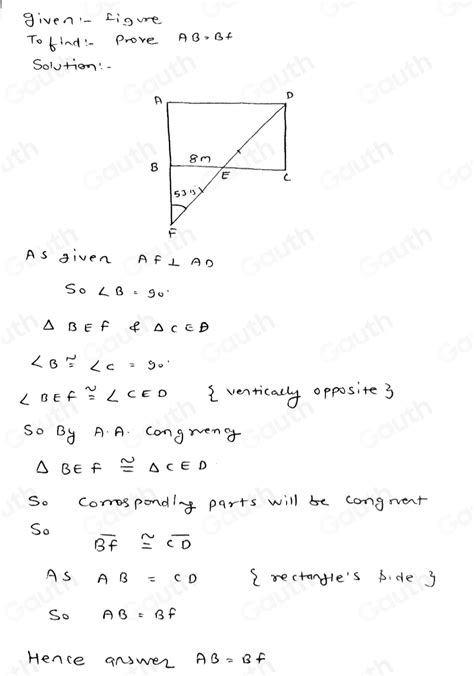 given:- figure
To find:- Prove AB=Bf
Solution:-
A D
B 8m E C
53°
F
As given AF⊥AD
So ∠B = 90°
Δ BEF & Δ CED
∠B ≅ ∠C = 90°
∠BEF ≅ ∠CED { vertically opposite }
So By A.A. Congruency
Δ BEF ≅ Δ CED
So Corresponding parts will be congruent
So
Bf ≅ CD
As AB = CD { rectangle's side }
So AB = BF
Hence answer AB = BF
Gauth